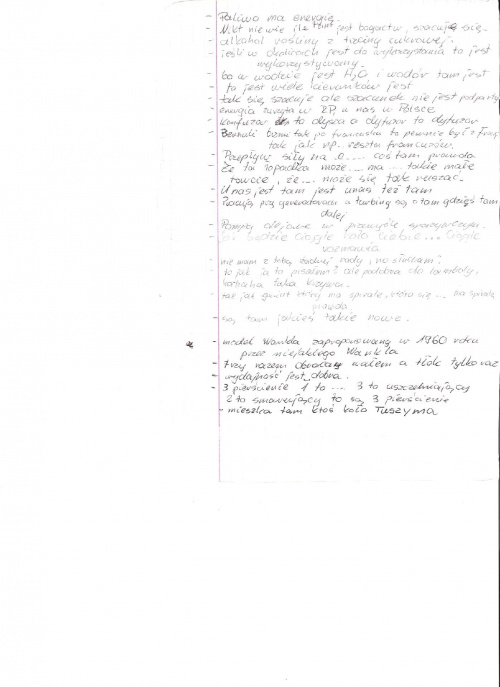 - Paliwo ma energię.
- Nikt nie wie ile tam jest bogactw, szacuje się.
- alkohol rośliny z trzciny cukrowej.
- jeśli w okolicach jest do wykorzystania to jest
wykorzystywany.
- bo w wodzie jest H2O i wodór tam jest
- to jest wiele kierunków jest
- tak się szacuje ale szacunek nie jest podparty
- energia zawarta w ZP u nas w Polsce
- konfuzor to dysza a dyfuzor to dyfuzor
- Bernuli brzmi tak po francusku to pewnie był z Francji
tak jak np. reszta francuzów.
- Przepływ siły na e.... coś tam prawda
- Że ta łopatka może... ma... takie małe
- towcie, że... może się tak ruszać.
- U nas jest tam jest unas też tam
- Pracują przy generatorach a turbiny są o tam gdzieś tam
dalej
- Pompy olejowe w przemyśle spożywczym.
- będzie ciągle koło ciebie... ciągle
rozmowa
- nie mam z tobą żadnej rady, no słucham!
- to jak ja to pisałem? ale podobna do
taka krzywa.
- tak jak gwint który ma spirale, która się... na spirale
prawda
- są tam jakieś takie nowe.
* - model Wankla zaproponowany w 1960 roku
przez niejakiego Wankla
- Trzy razem obracasz wałem a tłok tylko raz
- wydajność jest dobra.
- 3 pierścienie 1 to ... 3 to uszczelniający
2 to smarujący to są 3 pierścienie
- mieszka tam ktoś koło Tuszyma